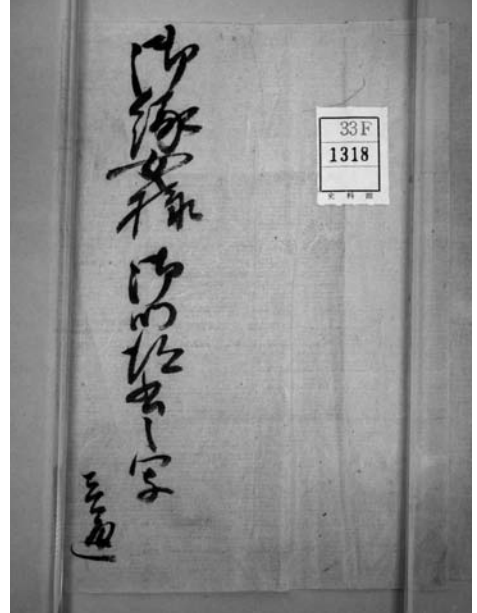 33F
1318
史料館
御縁女様 御書之写
三通